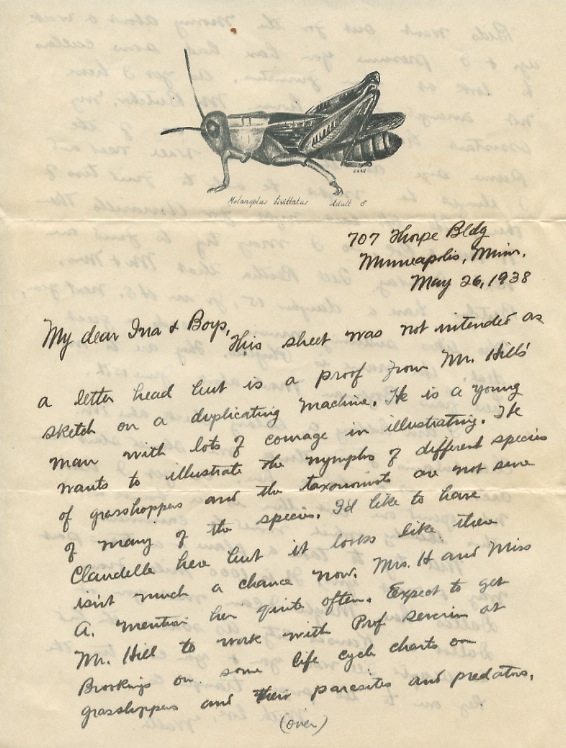 Melanoplus bivittatus Adult ♂
707 Thorpe Bldg
Minneapolis, Minn.
May 26, 1938
My dear Ina & Boys,
This sheet was not intended as
a letter head but is a proof from Mr. Hills'
sketch on a duplicating machine. He is a young
man with lots of courage in illustrating. He
wants to illustrate the nymphs of different species
of grasshoppers and the taxonomists are not sure
of many of the species. I'd like to have
Claudelle here but it looks like there
isn't much a chance now. Mrs. H and Miss
A. mention her quite often. Expect to get
Mr. Hill to work with Prof Severin at
Brookings on some life cycle charts on
grasshoppers and their parasites and predators.
(over)